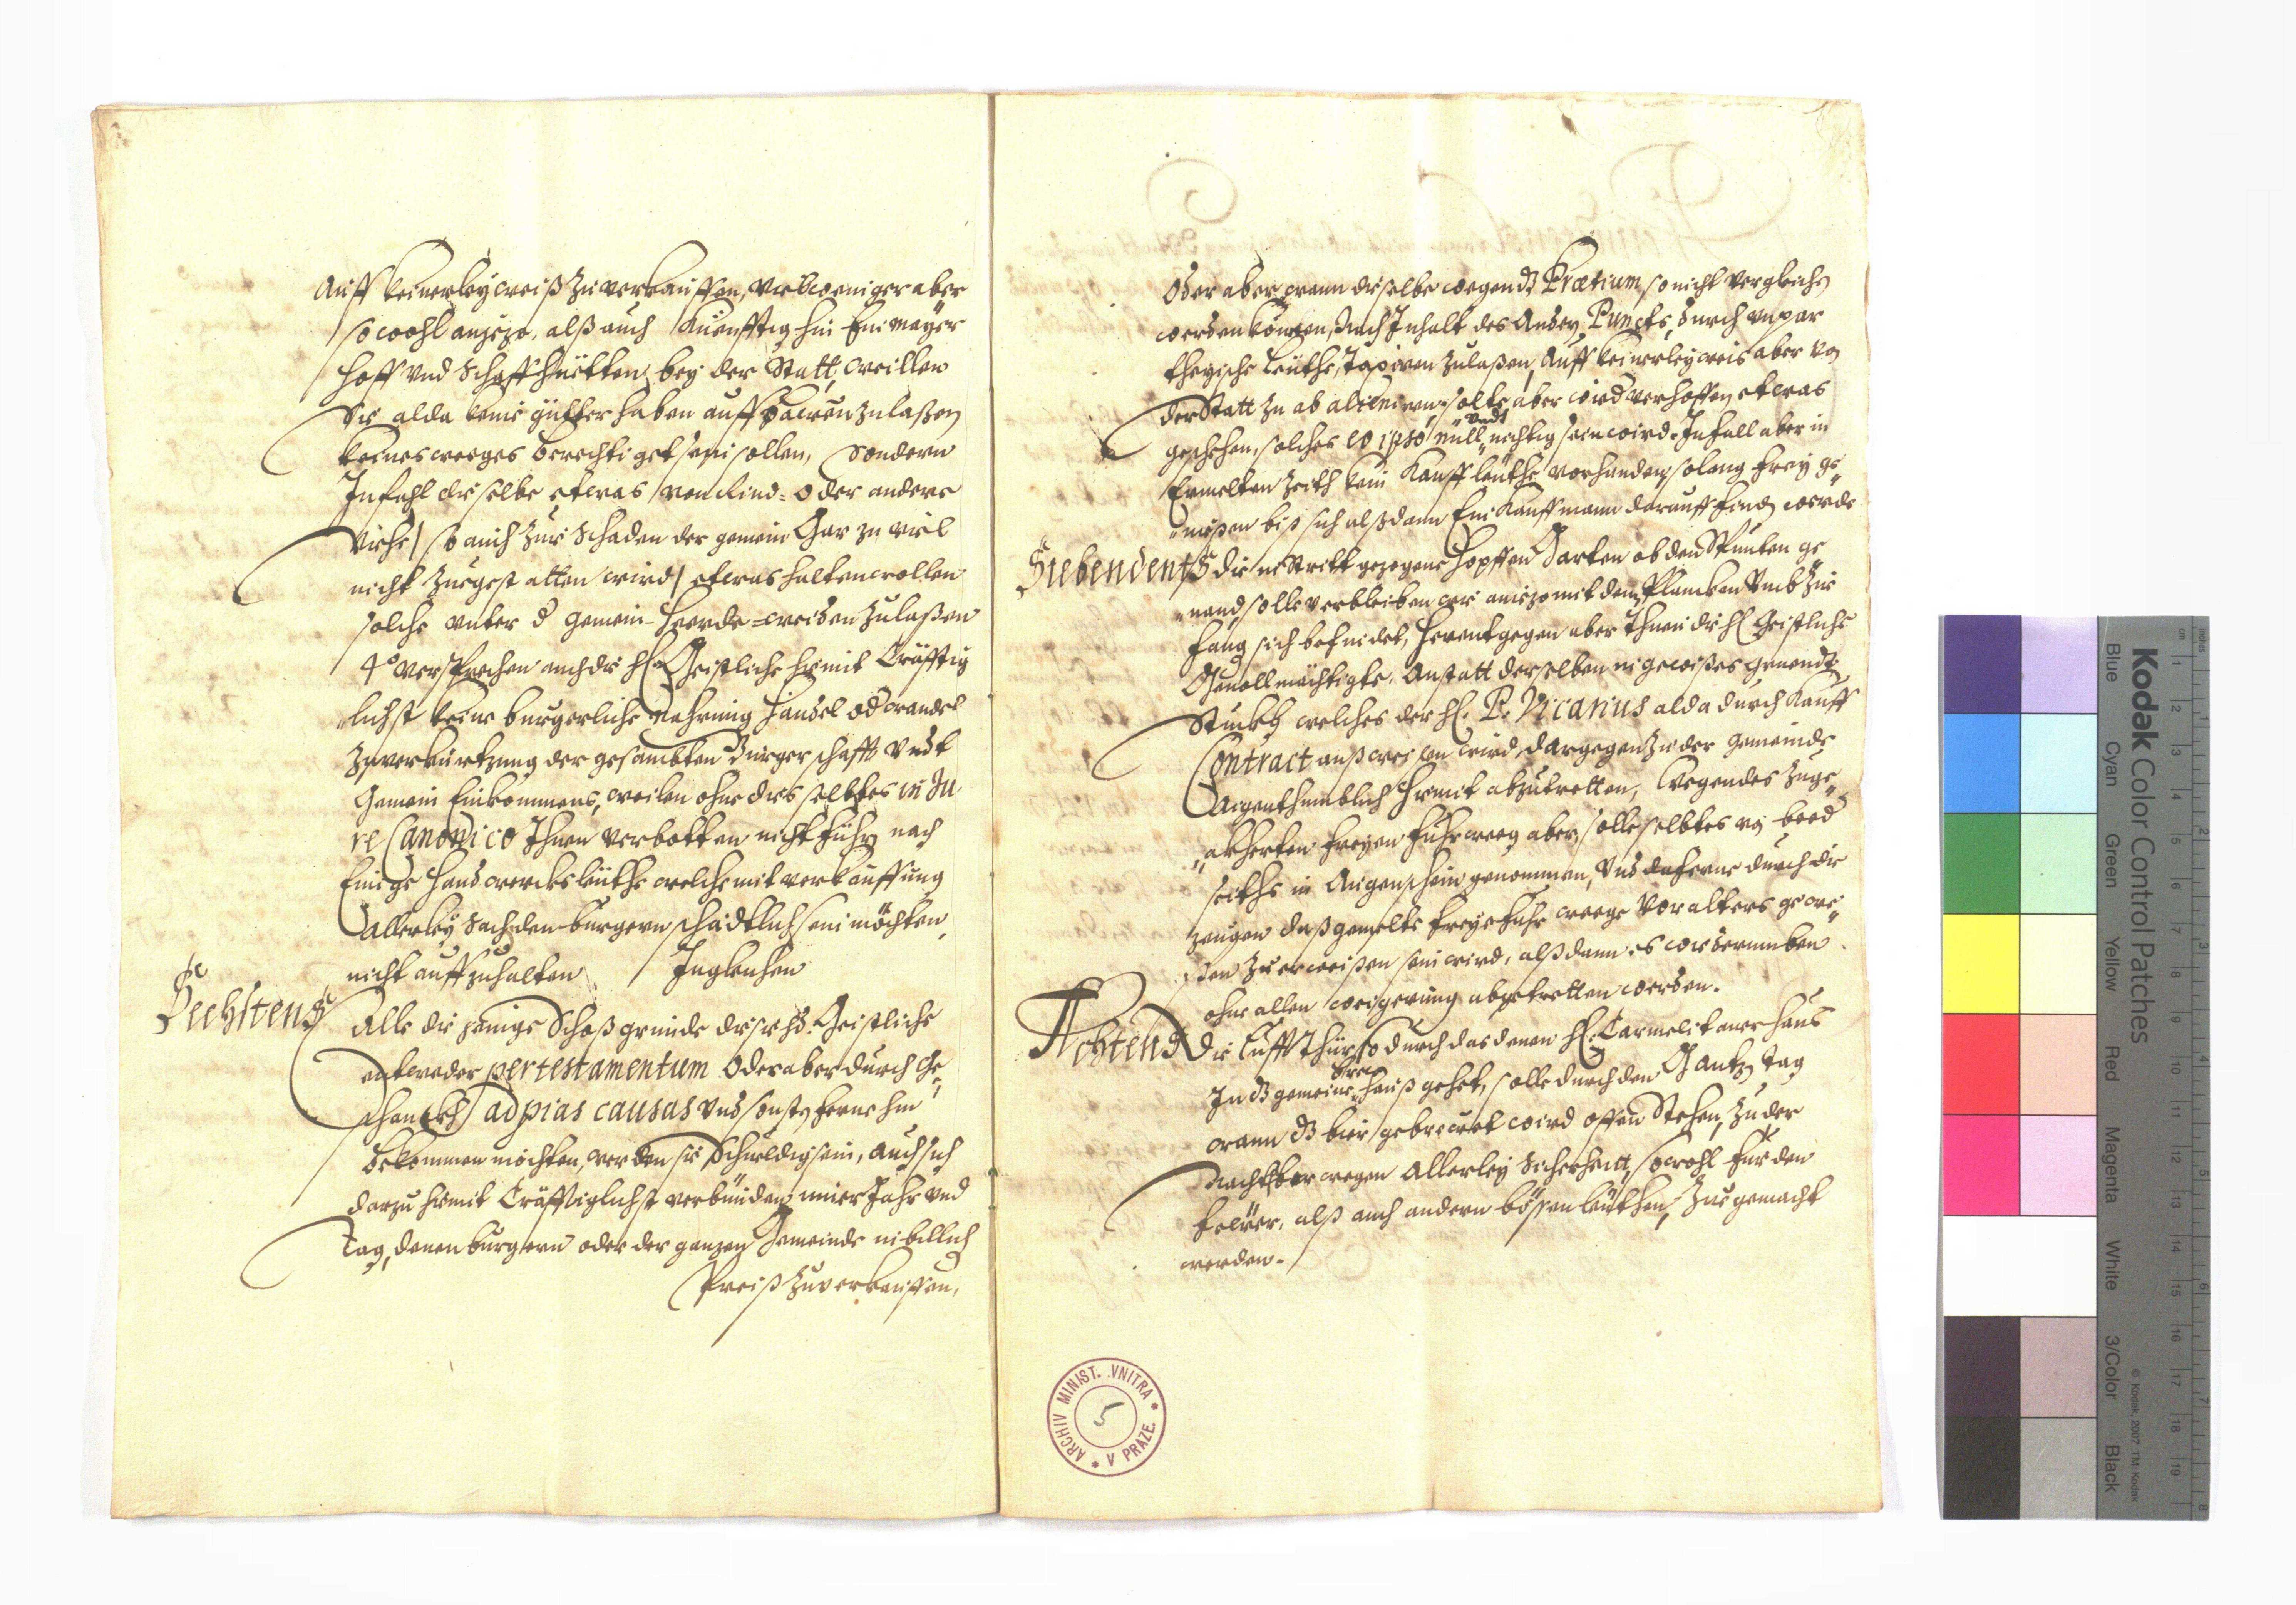 Auff keinerley weiß zu verkauffen, viel weniger aber
so wohl anjezo, alß auch künfftig hin Ein mayer
hoff und Schaffhütten bey der Statt, weillen
Sie alda keine gütter haben auff bawen zulaßen
keines weeges berechtiget sein sollen, Sondern
In fahl die selbe etwas von Rind= oder andere
Viehe so auch zur Schaden der gemein Gar zu viel
nicht zuegestatten wird etwas halten wollen
solche unter d gemein Heerde=weiden zulaßen
4º versprechen auch die H Geistliche hiemit Cräfftig
lichst keine burgerliche Nahrung Handel od wandel
zu verkürtzung der gesambten Burgerschafft undt
Gemein Einkommens, weilen ohne dies selbtes in Ju
re Canonico Ihnen verbotten nicht führn noch
Einige Handwercksleüthe welche mit verkauffung
Allerley Sach den burgern schädtlich sein möchten,
nicht auffzuhalten Ingleichen
Sechstens
Alle die jenige Schoßgründe die Geistliche
entweder per testamentum Oder aber durch Ge
schankh ad pias causas und sonsten ferne hin
bekommen möchten, werden sie Schuldig sein, auch sich
darzu hiemit Cräfftiglichst verbünden inner Jahr und
Tag, denen burgern oder der ganzen Gemeinde in billich
Preiß zuverkauffen,
Oder aber wenn dieselbe wegen dß Pretium, so nicht vergleichen
werden könten, Nach Inhalt des Andern Puncts, durch unpar
theyische Leüthe, Taxiren zulaßen, Auff keinerley weis aber von
der Statt zu ab alieniren, solte aber wird verhoffen etwas
geschehen, solches eo ipso null undt nichtig sein wird. In fall aber in
Ermelten Zeith kein Kauffleüthe vorhanden, solang frey ge„
„nießen biß sich alßdann Ein Kauffmann darauff finden werde
Siebendents die in Stritt gezogene Hopffen Garten ob den Spunten ge
„nand, solle verbleiben wie anjezo mit dem Plancken Umbzue
fang sich befindet, Herentgegen aber Ihnen die H Geistliche
Gevollmächtigte, Anstatt derselben in gewißes grundt
Stückh welches der H. P. Vicarius alda durch Kauff
Contract außweisen wird, dargegen zu der Gemeinde
Aigenthumblich hiemit abzutretten, Wegen des Zuege„
„akherten freyen Fuhrweeg aber, solle selbtes von beed
seiths in Augenschein genommen, Und daferne durch die
zeugen daß gemelte freye Fuhr weege vor alters gewe„
„sen zu erweißen sein wird, alßdann es wiederumben
ohne allen weigerung abgetretten werden.
Achtens Die Lufft Thür so durch das denen H. Carmelitaner Haus
In dß gemeine brew Hauß gehet, solle durch den Gantzn Tag
wann dß bier gebrewet wird offen Stehen, Zu der
Nacht aber wegen Allerley Sicherheit, so wohl für den
Fewer, alß auch andern bössen leüthen, Zue gemacht
werden.
ARCHIV MINIST. VNITRA * V PRAZE. *
5
Kodak Color Control Patches
Blue Cyan Green Yellow Red Magenta White 3/Color Black
© Kodak, 2007 TM: Kodak
cm 1 2 3 4 5 6 7 8 9 10 11 12 13 14 15 16 17 18 19
inches 1 2 3 4 5 6 7 8